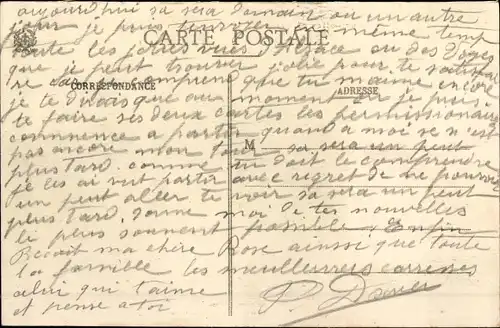 aujourd'hui sa sera demain ou un autre
jour je puis envoyer même temp
CARTE POSTALE
toute les jolies vues ou des
que je peut trouver jolie pour te
CORRESPONDANCE
se comprend que tu m'aime encore
ADRESSE
je te dirais que au moment ou je puis
te faire ses deux cartes les permissionaire
commence a partir quand a moi se n'est
pas encore mon sa sera un peut
M
plus tard comme tu doit le comprendre
je les ai vut partir avec regret de ne pouvoir
un peut aller te voir sa sera un peut
plus tard, donne moi de tes nouvelles
le plus souvent possible. Enfin
Recoit ma chère Rose ainsie que toute
la famille les meulleures caresses
celui qui t'aime
et pense a toi
P.